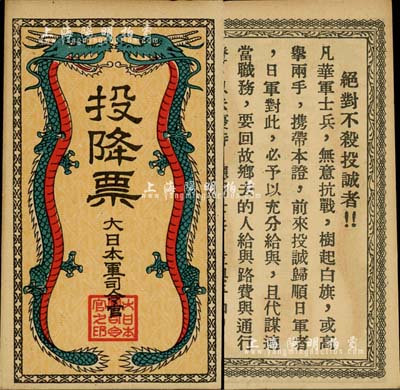 投降票
大日本軍司令官
大日本
軍司令
官之印
絕對不殺投誠者!!
凡華軍士兵,無意抗戰,樹起白旗,或高
舉兩手,攜帶本證,前來投誠歸順日軍者
,日軍對此,必予以充分給與,且代謀
當職務,要回故鄉去的人給與路費與通行
上海陽明拍賣